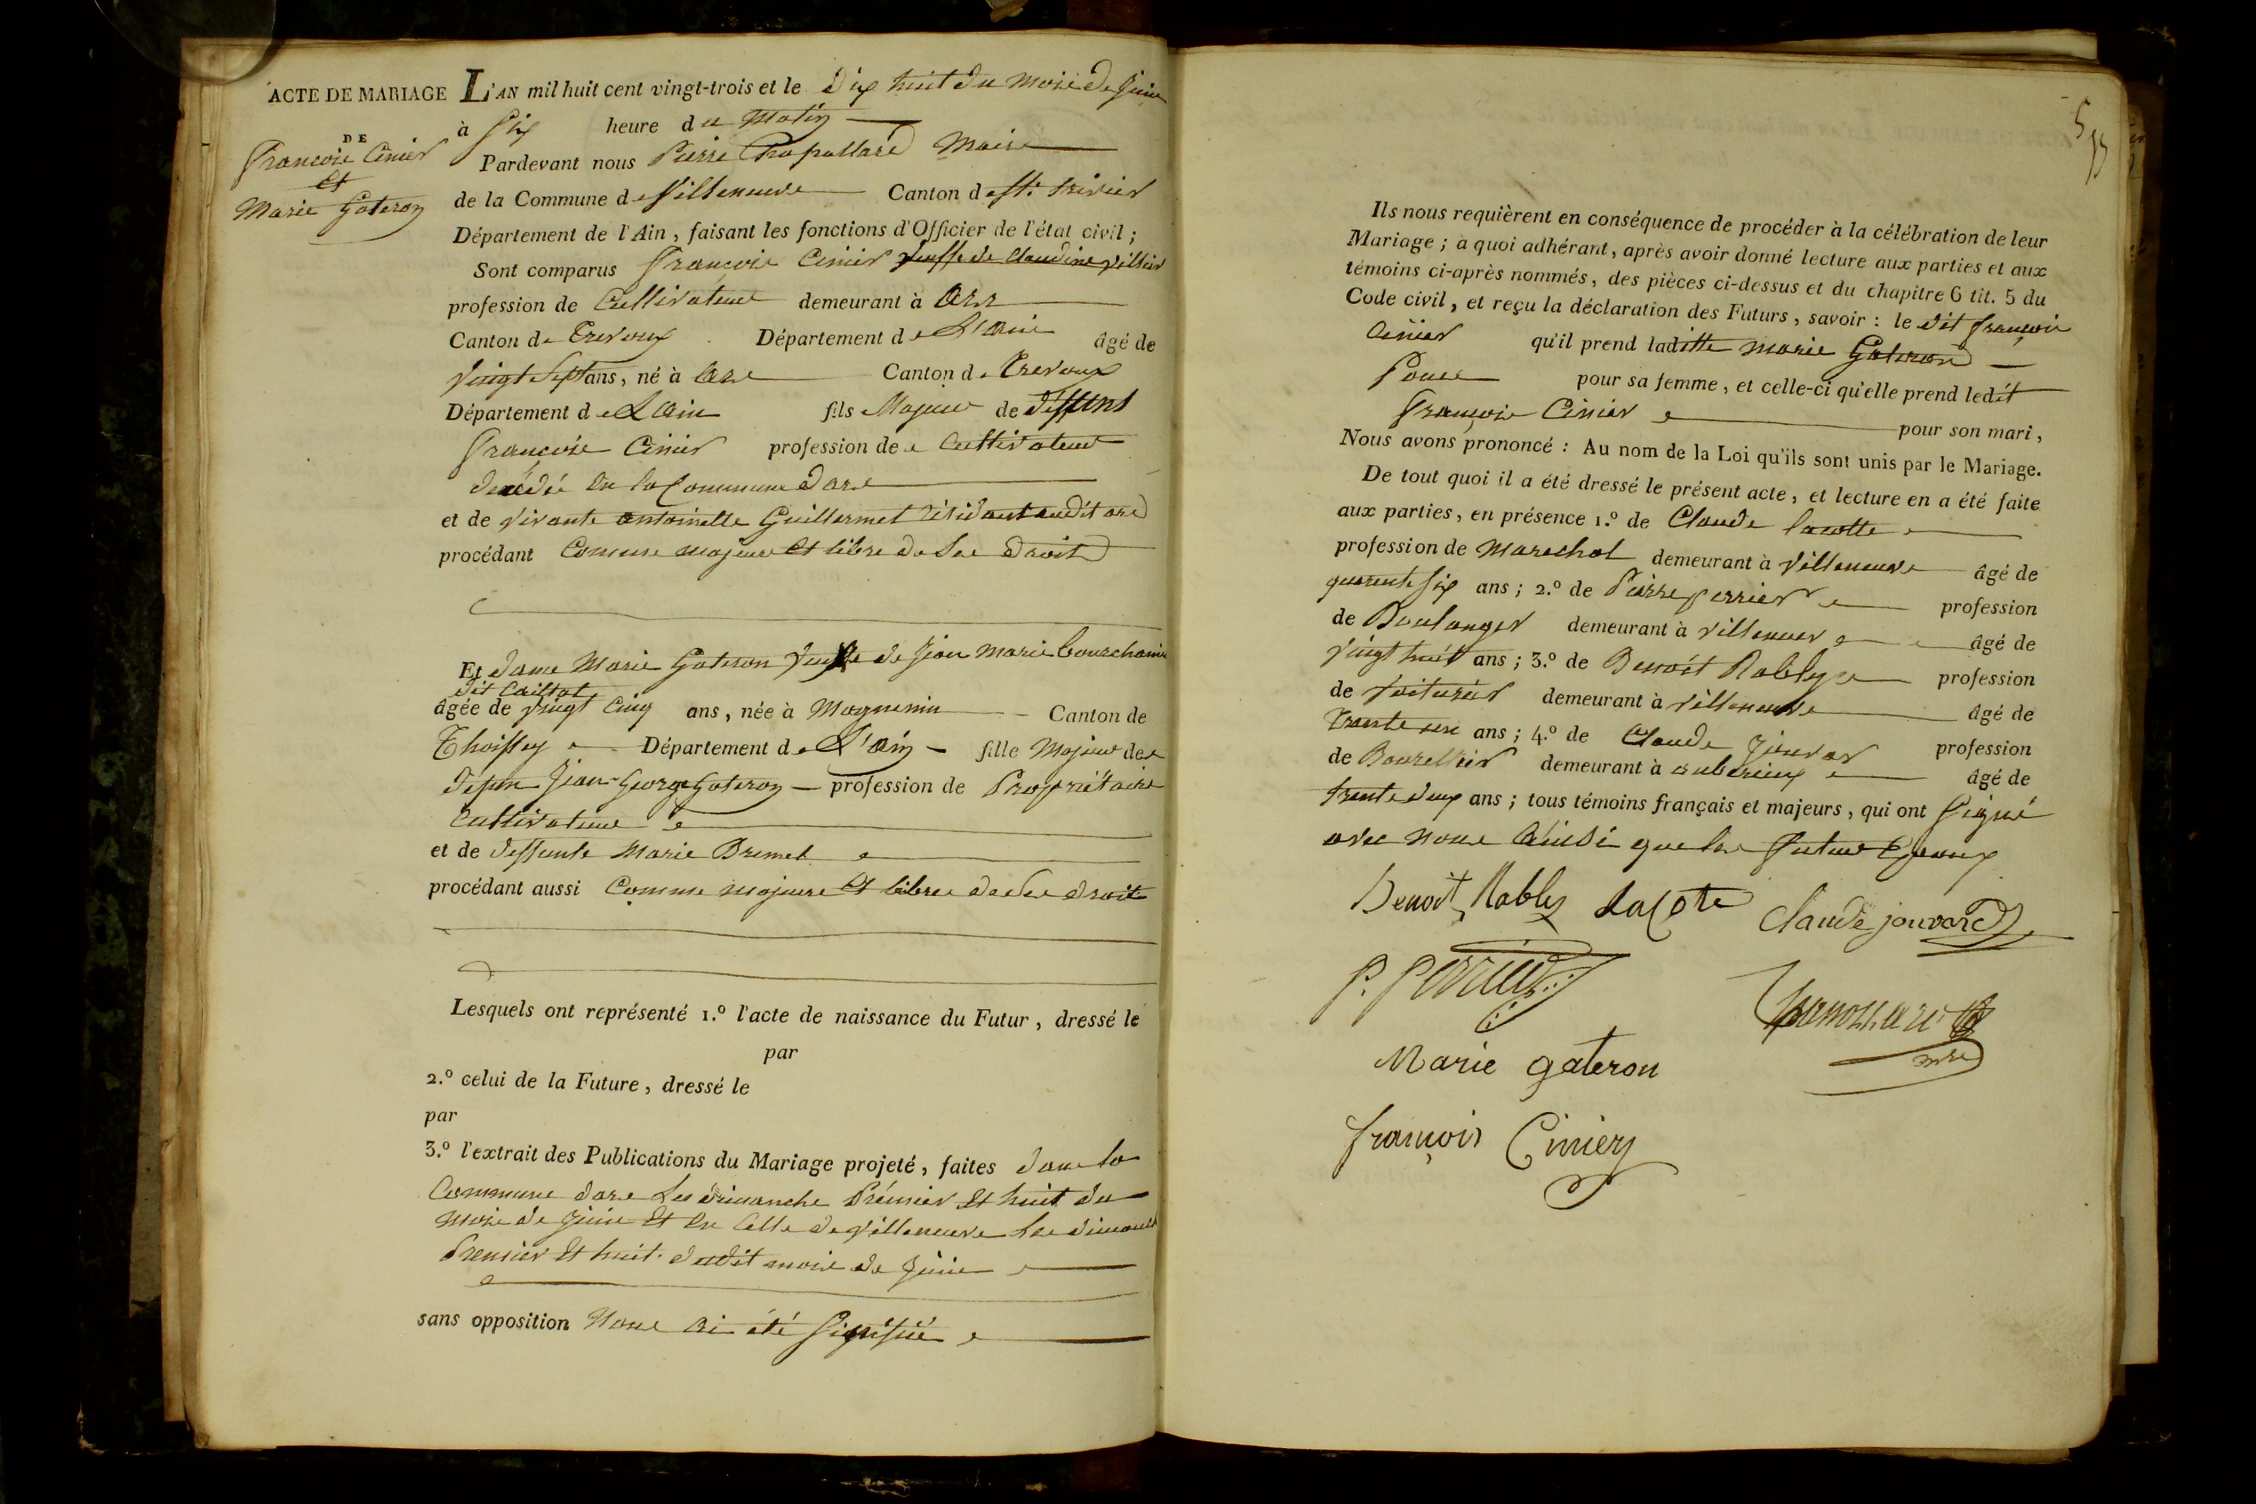 ACTE DE MARIAGE
DE
François Cinier
et
Marie Gateron
L'AN mil huit cent vingt-trois et le dix huit du mois de juin
à six heure du matin
Pardevant nous Pierre Maire
de la Commune de Villeneuve Canton de St. trivier
Département de l'Ain, faisant les fonctions d'Officier de l'état civil;
Sont comparus François Cinier veuffe de Claudine villier
profession de Cultivateur demeurant à Ars
Canton de Trevoux Département de L'ain âgé de
vingt Sept ans, né à Ars Canton de Trevoux
Département de L'ain fils Majeur de deffunt
François Cinier profession de Cultivateur
decédée en la Commune dars
et de vivante antoinette Guillermet résidant audit ars
procédant Comme majeur et libre de ses droits
Et dame Marie Gateron veuffe de Jean Marie
dit
âgée de vingt Cinq ans, née à Mognenin Canton de
Thoissey Département de L'ain fille Majeur de
defun Jean George Gateron profession de Propriétaire
Cultivateur
et de deffunte Marie Bremet
procédant aussi Comme majeure et libres de ses droits
Lesquels ont représenté 1.º l'acte de naissance du Futur, dressé le
par
2.º celui de la Future, dressé le
par
3.º l'extrait des Publications du Mariage projeté, faites dans la
Commune dars les dimanche Prémier et huit du
mois de juin et en Celle de Villeneuve les dimanch
Premier et huit dudit mois de juin
sans opposition Nous ai été signifiée
5
Ils nous requièrent en conséquence de procéder à la célébration de leur
Mariage; à quoi adhérant, après avoir donné lecture aux parties et aux
témoins ci-après nommés, des pièces ci-dessus et du chapitre 6 tit. 5 du
Code civil, et reçu la déclaration des Futurs, savoir: le dit françois
Cinier qu'il prend laditte Marie Gateron
Pour pour sa femme, et celle-ci qu'elle prend ledit
François Cinier pour son mari,
Nous avons prononcé: Au nom de la Loi qu'ils sont unis par le Mariage.
De tout quoi il a été dressé le présent acte, et lecture en a été faite
aux parties, en présence 1.º de Claude lacotte
profession de Marechal demeurant à Villeneuve âgé de
quarente six ans; 2.º de Pierre perrier profession
de Boulanger demeurant à villeneuve âgé de
vingt huit ans; 3.º de Benoît Robly profession
de voiturier demeurant à villeneuve âgé de
trante un ans; 4.º de Claude Jouvar profession
de Bourellier demeurant à auberieux âgé de
trente deux ans; tous témoins français et majeurs, qui ont signé
avec nous ainsi que les futurs Epoux
Benoit Robly Lacote Claude jouvard
P. Perrier
mre
Marie gateron
françois Ciniery